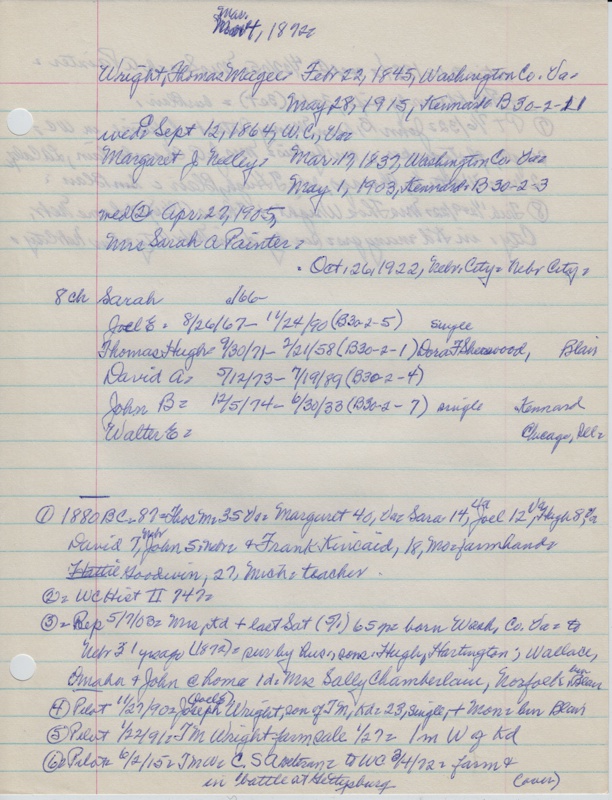 Mar.
Mar 4, 1872
Wright, Thomas Magee = Feb 22, 1845, Washington Co. Va =
May 28, 1915, Kennard B 30-2-21
wed ① Sept 12, 1864, W.C., Va
Margaret J Kelley = Mar. 17, 1837, Washington Co. Va =
May 1, 1903, Kennard = B 30-2-3
med (2) Apr. 27, 1905,
Mrs Sarah A Painter =
Oct, 26, 1922, Nebr City = Nebr City =
8 ch Sarah /66 -
Joel E = 8/26/67 - 11/24/90 (B30-2-5) single
Thomas Hugh 9/30/71 - 2/21/58 (B30-2-1) Dora F Sherwood, Blair
David A = 5/12/73 - 7/19/89 (B30-2-4)
John B = 12/5/74 - 6/30/33 (B30-2-7) single Kennard
Walter E = Chicago, Ill =
① 1880 BC = 87 = Thos M = 35 Va = Margaret 40, Va = Sara 14, Va Joel 12 Va, Hugh 8, Va
David 7, Nebr John 5 Nebr = & Frank Kincaid, 18, Mo = farmhand =
Hattie Goodwin, 27, Mich = teacher.
② = WC Hist II 747 =
③ = Rep 5/7/03 = Mrs, td + last Sat (5/1) 65 y = born Wash, Co. Va = to
Nebr 31 yrs ago (1872) = sur by hus, sons = Hugh, Hartington; Wallace,
Omaha & John @ home 1 d = Mrs Sally Chamberlain, Norfolk bur Blair
④ Pilot 11/27/90 = Joseph (Joel E) Wright, son of TM, Kd = 23, single, + Mon = bur Blair
⑤ Pilot 1/22/91 = TM Wright farm sale 1/27 = 1 m W of Kd
⑥ Pilot = 6/2/15 = TM W = C. S A veteran = to WC 3/4/72 = farm &
in battle at Gettysburg (over)